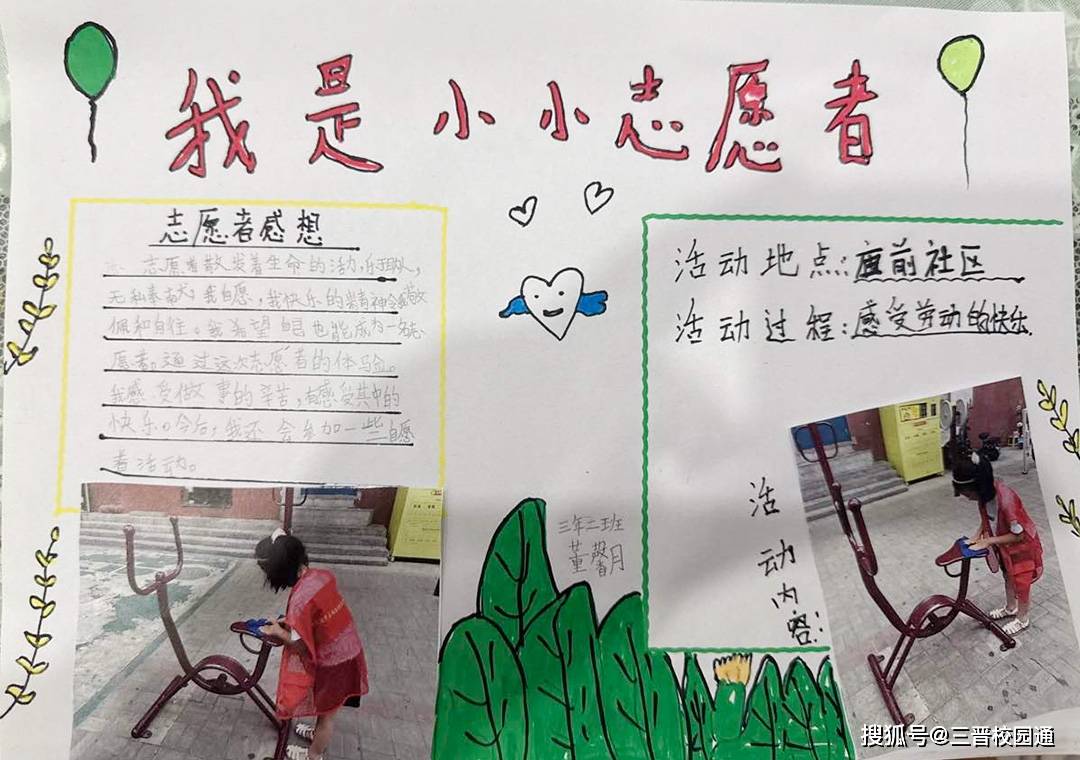 我是小小志愿者
志愿者感想
志愿者散发着生命的活力,乐
无私奉献,我自愿,我快乐的精神令我敬
佩和自往。我希望自己也能成为一名志
愿者。通过这次志愿者的体验。
我感受做事的辛苦,有感受其中的
快乐。今后,我还会参加一些自愿
者活动。
活动地点:直前社区
活动过程:感受劳动的快乐.
活动内容:
三年二班
董馨月
搜狐号@三晋校园通